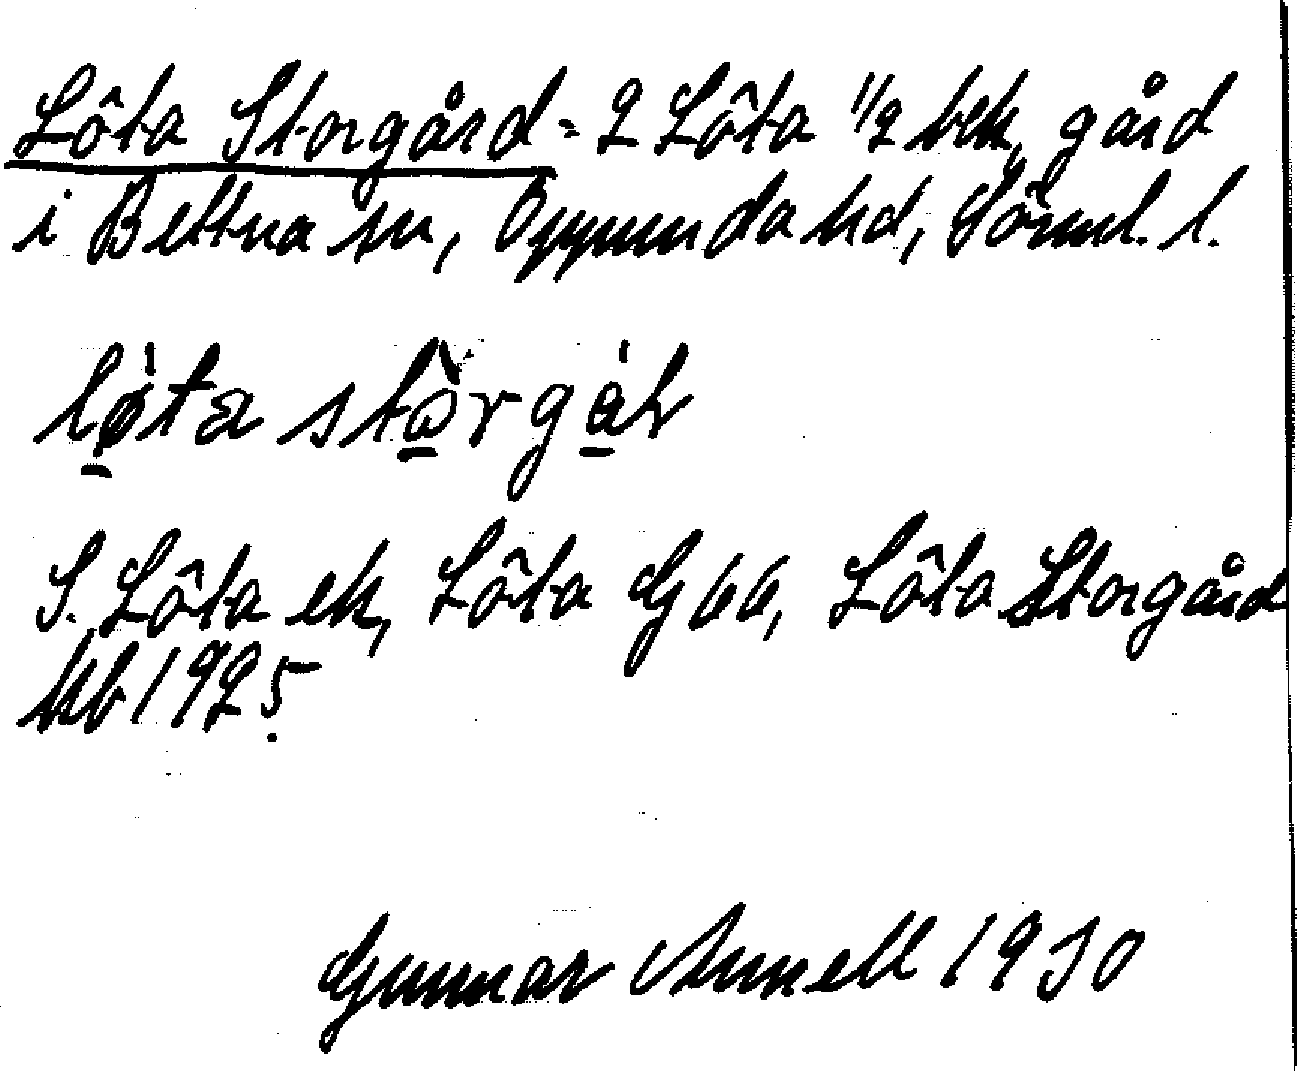 Lôta Storgård = 2 Lôta 1/2 bek. gård
i Bettna sn, Oppunda hd, Sörml. l.
lø̀ta stòrgár
S. Lôta ek, Lôta G 66, Lôta Storgård
kb 1925.
Gunnar Annell 1930